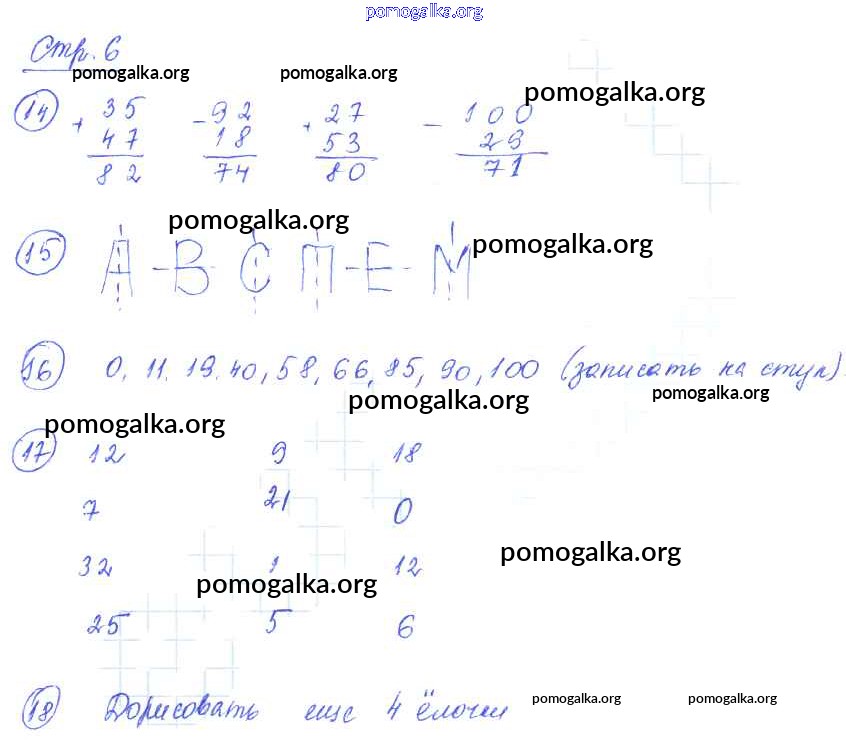 pomogalka.org
Стр. 6
pomogalka.org pomogalka.org
pomogalka.org
14 + 35 - 92 + 27 - 100
47 18 53 29
82 74 80 71
pomogalka.org
pomogalka.org
15 А В С П Е М
16 0, 11. 19. 40, 58, 66, 85, 90, 100 (записать на стул).
pomogalka.org pomogalka.org
pomogalka.org
17 12 9 18
7 21 0
pomogalka.org
32 1 12
pomogalka.org
25 5 6
18 Дорисовать еще 4 ёлочки
pomogalka.org pomogalka.org